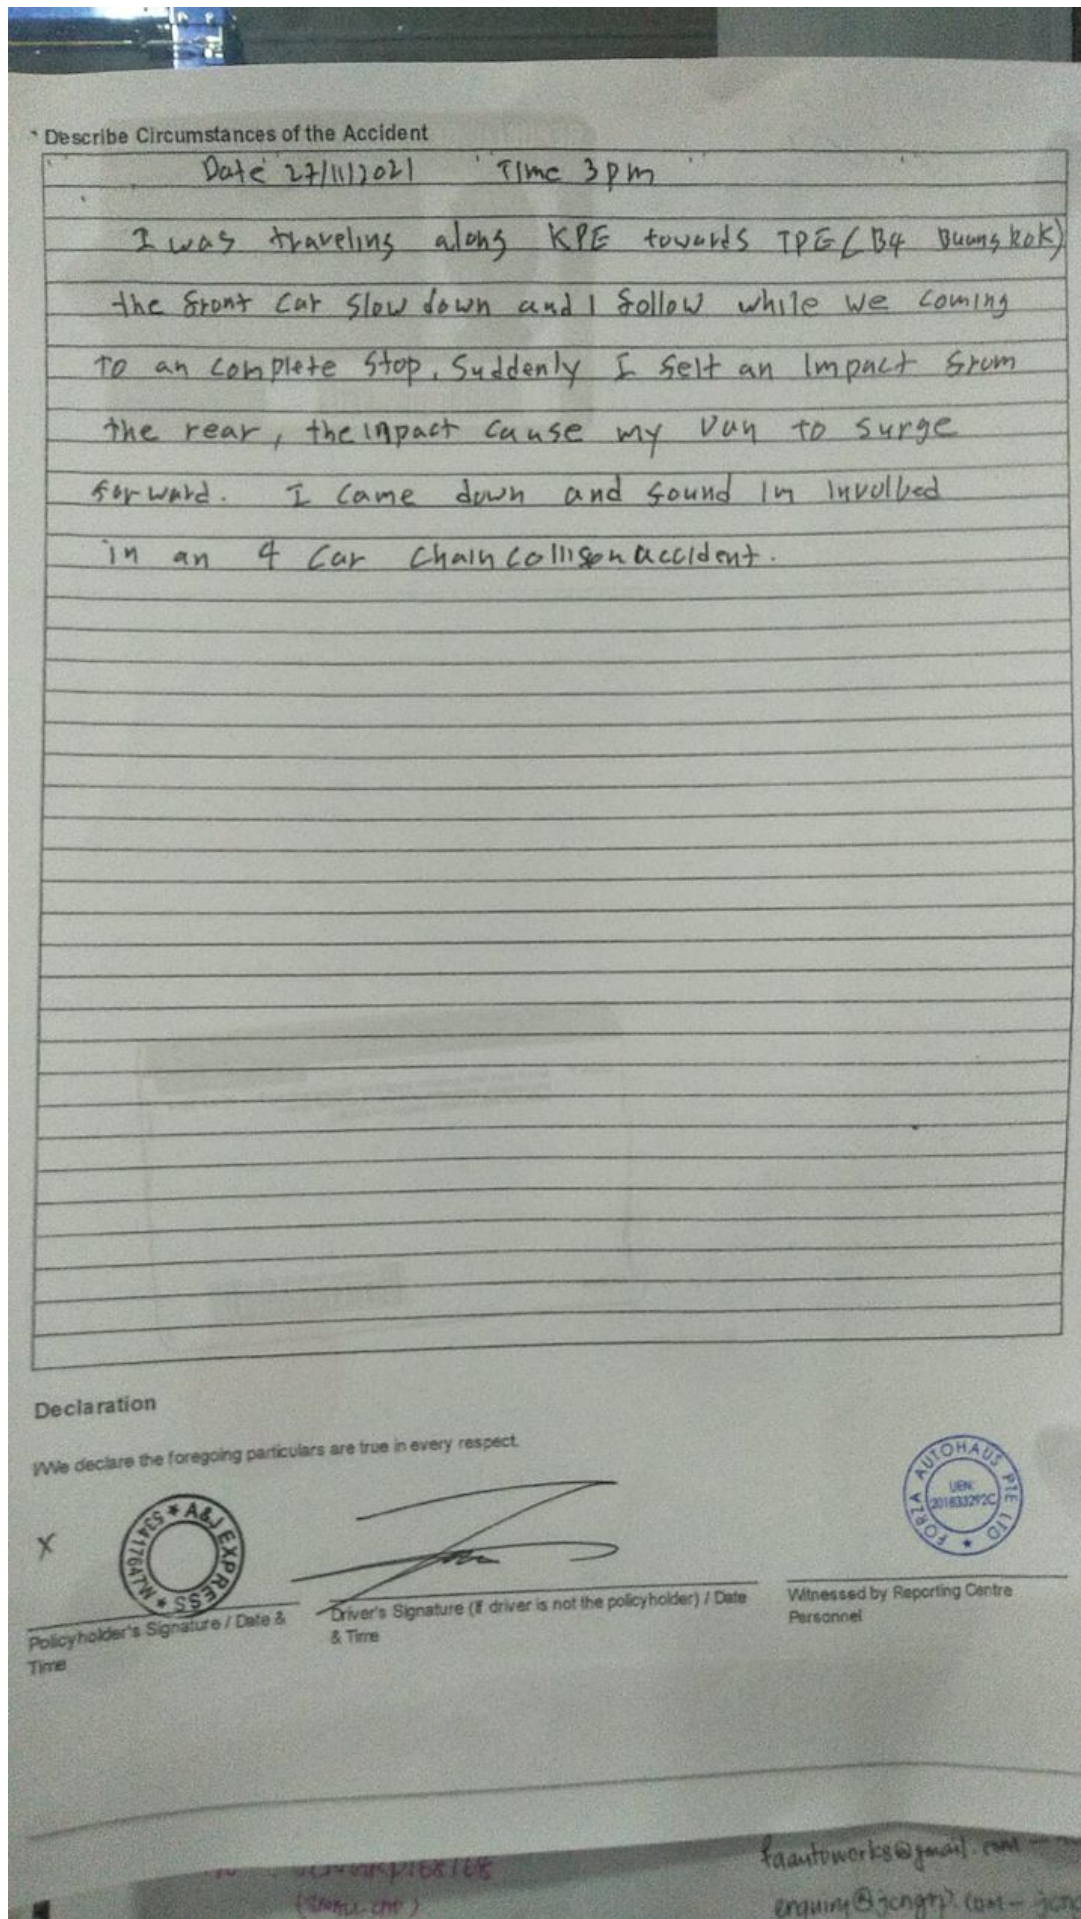 * Describe Circumstances of the Accident
Date 27/11/2021 Time 3pm
I was traveling along KPE towards TPE (B4 Buangkok)
the front car slow down and I follow while we coming
to an complete stop. Suddenly I felt an impact from
the rear, the inpact cause my van to surge
forward. I came down and found Im involbed
in an 4 car chain collison accident.
Declaration
I/We declare the foregoing particulars are true in every respect.
X
A&J EXPRESS
53417647W
FORZA AUTOHAUS PTE LTD
UEN:
201833292C
Policyholder's Signature / Date &
Time
Driver's Signature (if driver is not the policyholder) / Date
& Time
Witnessed by Reporting Centre
Personnel
faautoworks@gmail.com